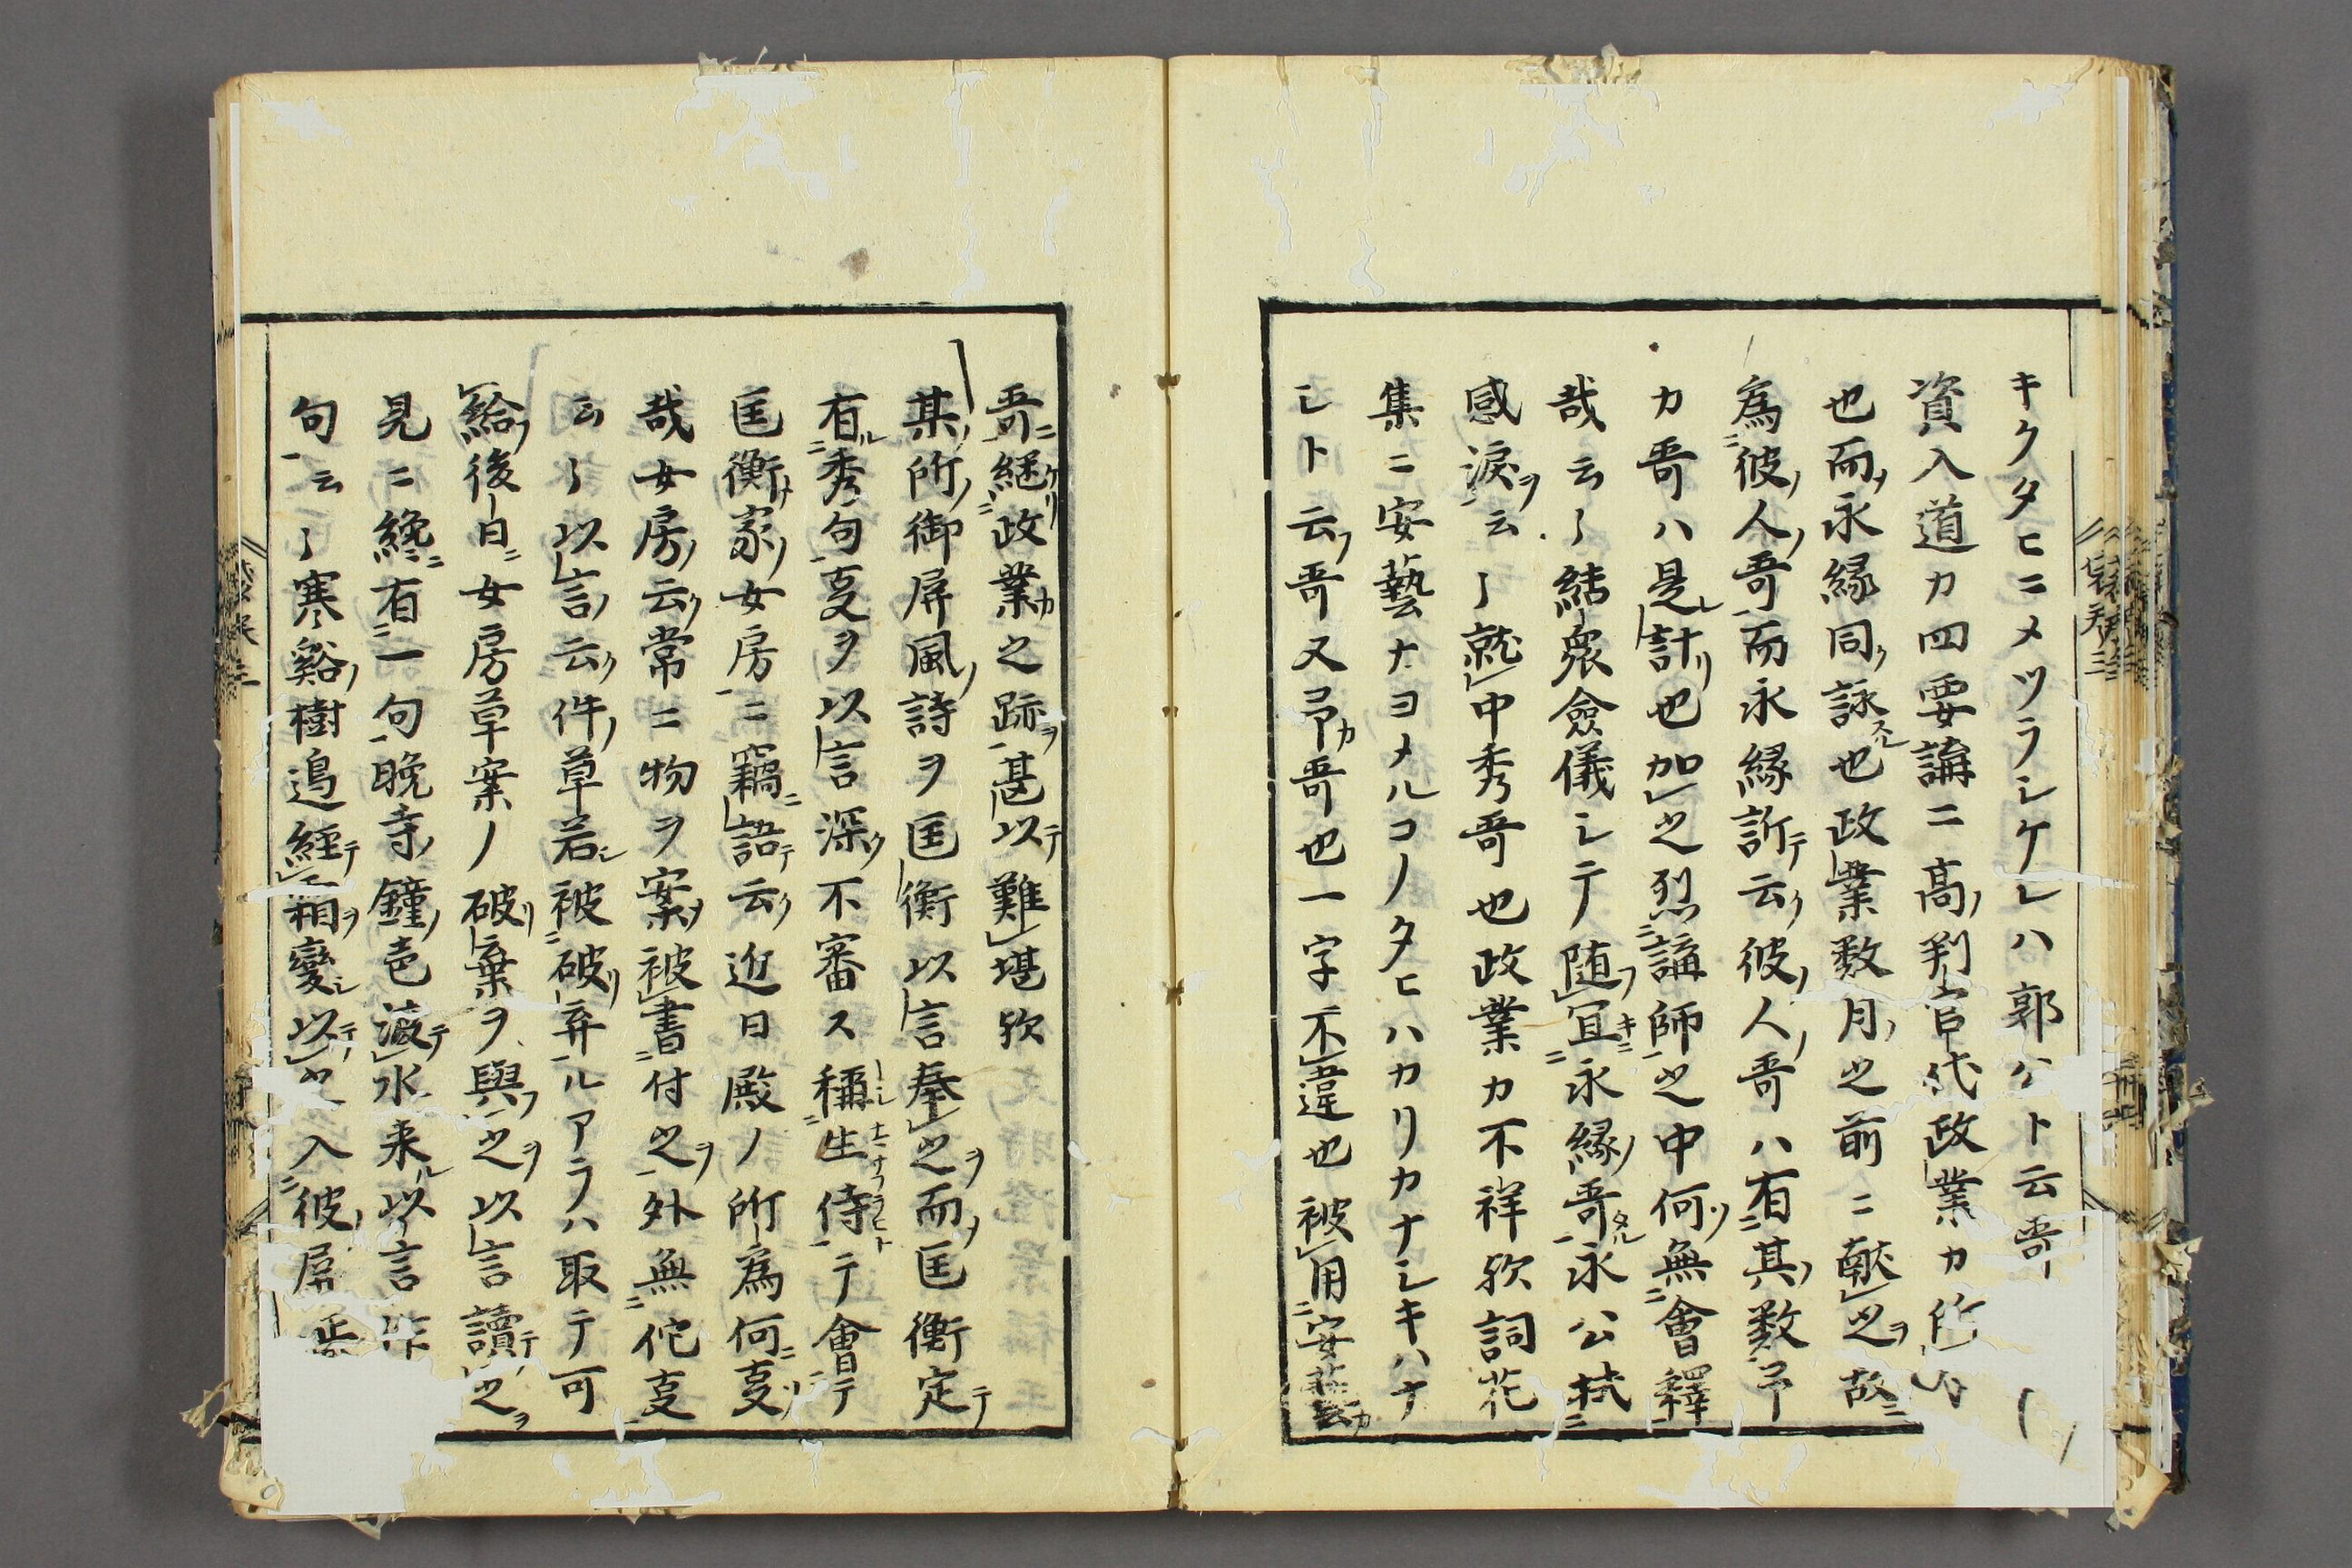 キクタヒニメツラシケレハ郭公ト云哥
資入道カ四要講ニ高判官代政業カ
也而永縁同詠也政業数月之前ニ献之故
為彼人哥而永縁訴云彼人哥ハ有其数予
カ哥ハ是計也加之烈講師之中何無會釋
哉云々結衆僉儀シテ随宜永縁哥永公拭
感涙云々就中秀哥也政業カ不祥歟詞花
集ニ安藝ナヨメルコノタヒハカリカナシキハナ
シト云哥又予哥也一字不違也被用安藝
哥継政業之跡甚以難堪歟
某所御屏風詩ヲ匡衡以言奉之而匡衡定
有秀句支ヲ以言深不審ス稱生侍テ會テ
匡衡家女房ニ竊語云近日殿ノ所為何支
哉女房云常ニ物ヲ案被書付之外無佗支
云々以言云件草若被破弃ルアラハ取テ可
給後日女房草案ノ破棄ヲ與之以言讀之
見ニ纔有一句晩寺鐘壱渡水来以言作
句云々寒谿樹邉經霜變以之入彼屏